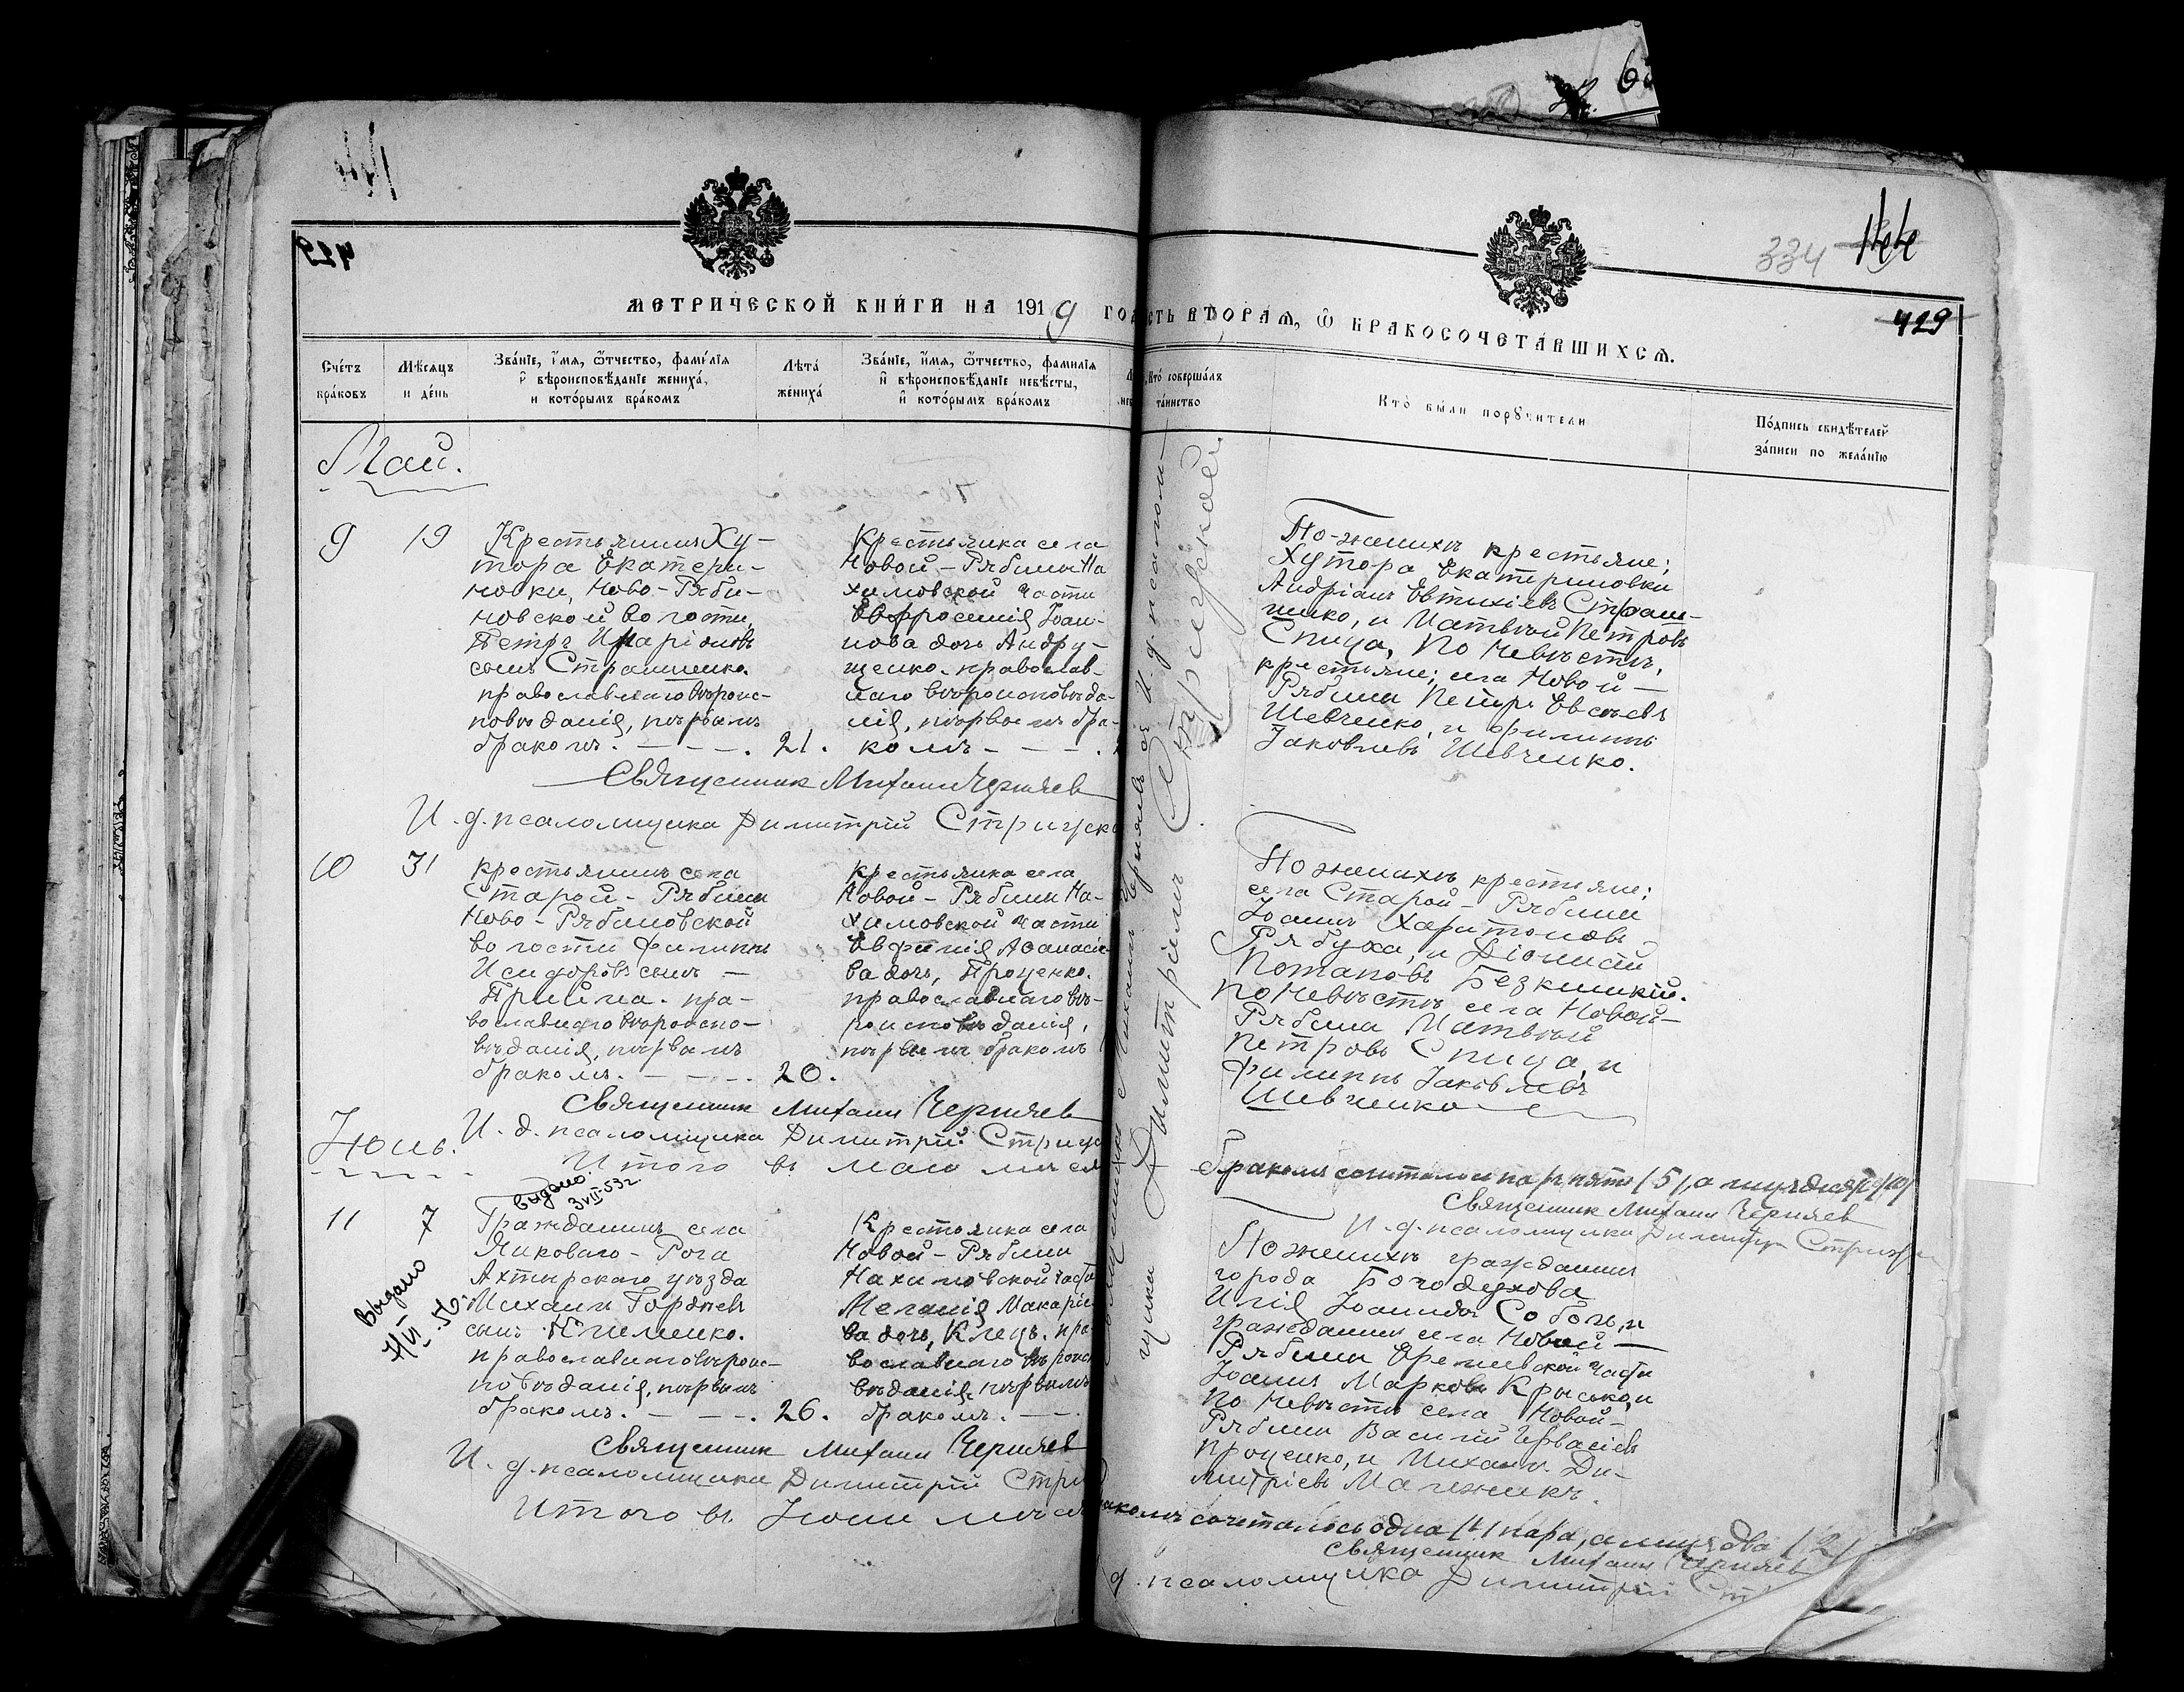 334
429
МЕТРИЧЕСКОЙ КНИГИ НА 1919 ГО
СТЬ ВТОРАЯ, Ѡ БРАКОСОЧЕТАВШИХСЯ.
Счетъ браковъ
Мѣсяцъ и день
Званїе, имя, ѿчество, фамилїя и вѣроисповѣданїе жениха, и которымъ бракомъ
Лѣта жениха
Званїе, имя, ѿчество, фамилїя и вѣроисповѣданїе невѣсты, и которымъ бракомъ
Кто совершалъ таинство
Кто были порꙋчители
Подпись свидѣтелей записи по желанїю
Май.
9
19
Крестьянинъ Ху-
тора Екатери-
новки, Ново-Ряби-
новской волости,
Петръ Иларіоновъ
сынъ Страшненко.
православнаго вѣроис-
повѣданія, первымъ
бракомъ. - - - . 21.
Крестьянка села
Новой-Рябины На
химовской части
Евфросинія Іоан-
нова дочь Андру-
щенко. православ-
наго вѣроисповѣда-
нія, первымъ бра-
комъ - - - .
По-женихѣ крестьяне;
Хутора Екатериновки
Андріанъ Евтихіевъ Страш-
ненко, и Матвѣй Петровъ
Спица, По невѣстѣ,
крестьяне; села Новой-
Рябины Петръ Евсѣевъ
Шевченко, и Филиппъ
Іаковлевъ Шевченко.
Священник Михаил Черняев
И. д. псаломщика Димитрій Стрижск
10
31
крестьянинъ села
Старой-Рябины
Ново-Рябиновской
волости Филиппъ
Исидоровъ сынъ -
Прийма. пра-
вославнаго вѣроиспо-
вѣданія, первымъ
бракомъ. - - - . 20.
крестьянка села
Новой-Рябины На-
химовской части
Евфимія Аѳанасіе
ва дочь, Проценко.
православнаго вѣ-
роисповѣданія,
первымъ бракомъ
По женихѣ крестьяне;
села Старой-Рябины
Іоаннъ Харитоновъ
Рябуха, и Діонисій
Потаповъ Безкишкій.
по невѣстѣ села Новой-
Рябины Матвѣй
Петровъ Спица, и
Филиппъ Іаковлевъ
Шевченко
Священник Михаил Черняев
И. д. псаломщика Димитрій Стриж
Итого въ маѣ мѣся
бракомъ сочеталось паръ пять (5), а лицъ десять (10)
Священник Михаил Черняев
И. д. псаломщика Димитрій Стриж
Іюнь.
Выдано
3 VII-53 г.
Выдано
4/VI 56.
11
7
Гражданинъ села
Яковаго-Рога
Ахтырскаго уѣзда
Михаилъ Гордѣевъ
сынъ Клименко.
православнаго вѣроис-
повѣданія, первымъ
бракомъ. - - - . 26.
Крестьянка села
Новой-Рябины
Нахимовской части
Меланія Макаріе
ва дочь, Клецъ. пра
вославнаго вѣроисп
вѣданія, первымъ
бракомъ. - -
По женихѣ гражданинъ
города Богодухова
Илія Іоанновъ Соболь, и
гражданинъ села Новой-
Рябины Еремѣевской части
Іоаннъ Марковъ Крысько, и
по невѣстѣ села Новой-
Рябины Василій Гервасіевъ
Проценко, и Михаилъ Ди-
митріевъ Малежикъ.
Священник Михаил Черняев
И. д. псаломщика Димитрій Стри
Итого въ Іюнѣ мѣся
комъ сочеталось одна (1) пара, а лицъ два (2)
Священник Михаил Черняев
д. псаломщика Димитрій Ст